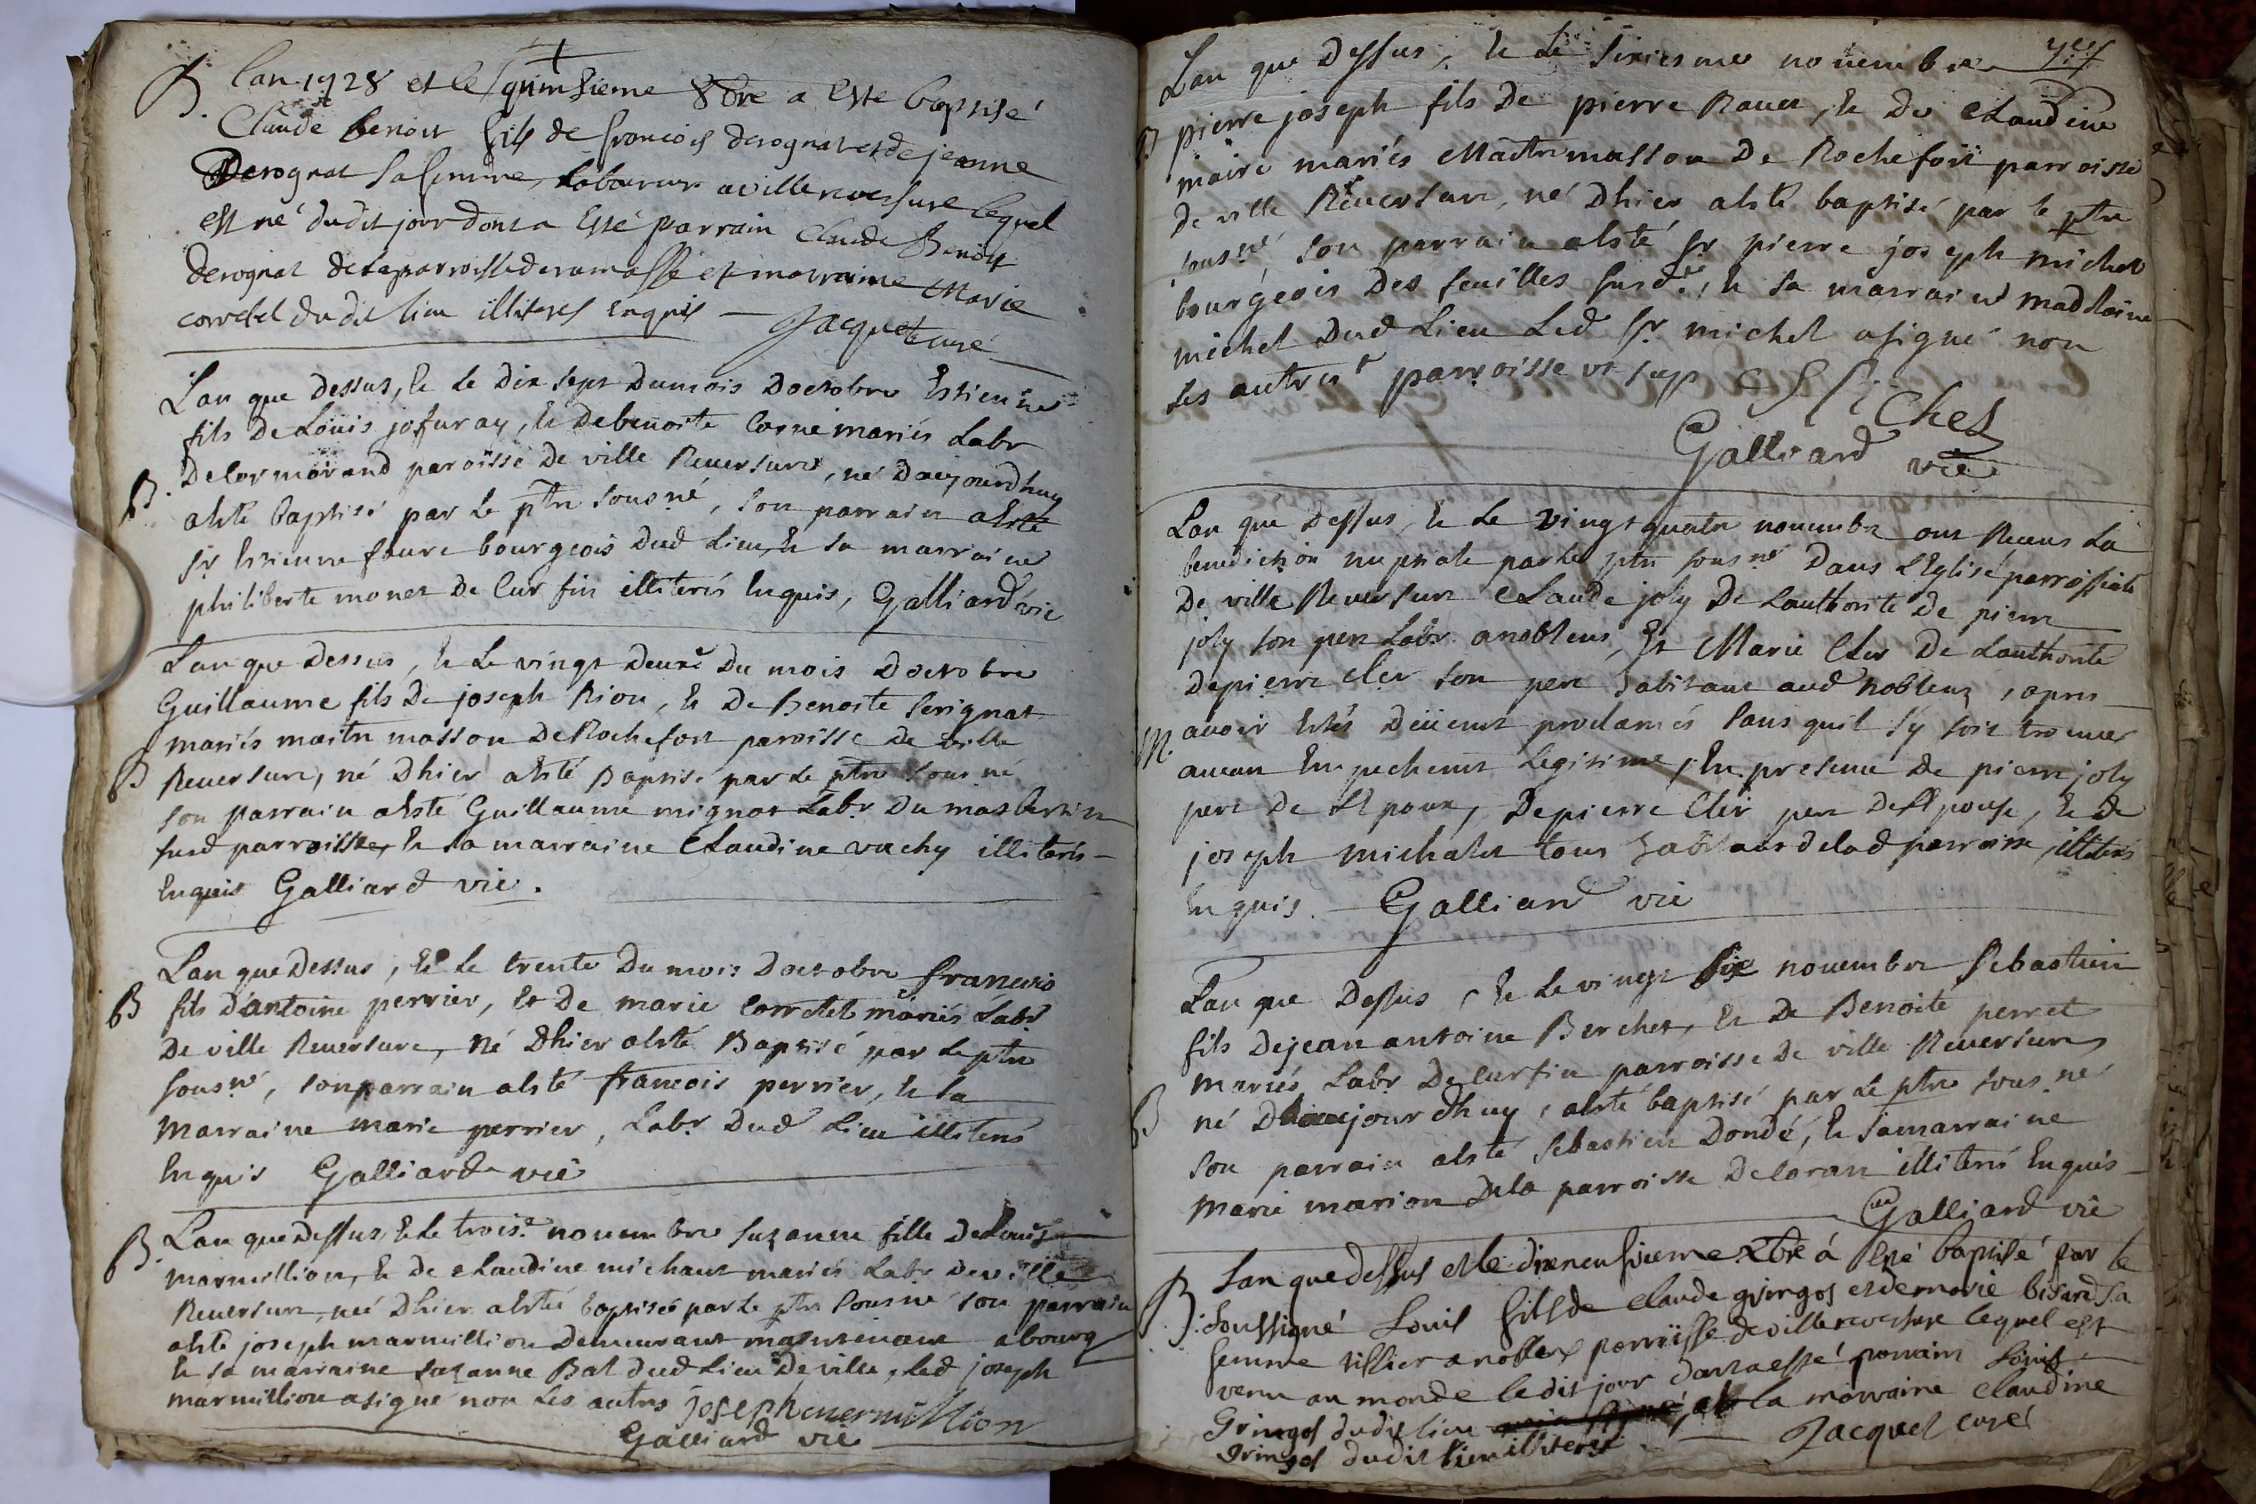 B. Lan 1728 et le quinsieme 8bre a esté baptisé
Claude benoit fils de francois derognat et de jeanne
Derognat sa femme, laboureur a villereversure lequel
est né dudit jour dont a esté parrain Claude Benoit
derognat de la parroisse de ramasse et marraine Marie
corretel du dit lieu illiterés enquis — Jacquet curé
Lan que dessus, & le dix sept du mois doctobre Estienne
fils De Loüis jofuray, & de benoite Corne mariés Labr
De cormorand paroisse De ville Reversure, né Daujourdhuy
B. aesté baptisé par le ptre sousné, son parrain aesté
sr Estienne faure bourgeois dud Lieu, & sa marraine
philiberte monet de Curfin illiterés Enquis, Galliard vic
Lan que dessus, & Le vingt deuxe Du mois Doctobre
Guillaume fils De joseph Riou, & De Benoite Serignat
mariés maitre masson De Rochefort paroisse De ville
B Reversure, né Dhier aesté Baptisé par le ptre sousné
son parrain aesté Guillaume mignot Labr. Du mas bertin
susd parroisse, & sa marraine Claudine vachy illiterés —
Enquis Galliard vic.
Lan que Dessus, & Le trente Du mois Doctobre francois
B fils d'antoine perrier, & De marie Corretel mariés Labr
De ville Reversure, Né Dhier aesté Baptisé par Le ptre
sousné, son parrain aesté francois perrier, & sa
Marraine marie perrier, Labr. Dud Lieu illiterés
Enquis Galliard vic
B. Lan que dessus & Le troise novembre suzanne fille De Louis
marmillion, & de Claudine michaut mariés Labr De ville
Reversure, née Dhier aestée baptisée par Le ptre sousné son parrain
aesté joseph marmillion demeurant maintenant a bourg
& sa marraine suzanne Bal dud Lieu De ville, Led joseph
marmillion a signé non Les autres joseph mermillion
Galliard vic
Lan que Dessus, & Le sixiesme novembre
B pierre joseph fils De pierre Ravet, & De Claudine
maire mariés Maitre masson De Rochefort parroisse
De ville Reversure, né Dhier aesté baptisé par le ptre
sousné son parrain aesté sr pierre joseph michel
bourgeois Des feuilles susd., & sa marraine maddlaine
michel Dud Lieu Led sr. michel a signé non
les autres parroisse ut sup Michel
Galliard vic
Lan que Dessus, & Le Vingt quatre novembre ont Receus La
benediction nuptiale par le ptre sousné Dans L'Eglise parroissiale
De ville Reversure Claude joly De Lauthorité De pierre
joly son pere Labr. a nobleus, Et Marie Cler De Lauthorité
De pierre Cler son pere habitant aud Nobleus, apres
M. avoir Estés Deüement proclamés sans quil s'y soit trouvé
aucun Empechement Legitime, En presence De pierre joly
pere De L'Epoux, De pierre Cler pere De L'Epouse, & de
joseph michalet tous habitans de lad parroisse, illiterés
Enquis. Galliard vic
Lan que Dessus, & Le vingt six novembre Sebastien
fils De jean antoine Berchet, & De Benoite perret
mariés, Labr De Curfin parroisse De ville Reversure
B né Daujourdhuy, aesté baptisé par Le ptre sousné
son parrain aesté sebastien Dondé, & sa marraine
Marie marion De la parroisse De Coran illiterés Enquis —
Galliard vic
B. Lan que dessus et le dixneufvieme Xbre á été baptisé par le
soussigné Louis fils de claude gringos et de marie bisard sa
femme tissier a nobles parroisse de villereversure lequel est
venu au monde le dit jour dont a esté parrain Louis
Gringos du dit lieu et la marraine claudine
gringos dudit lieu illiterés Jacquet curé